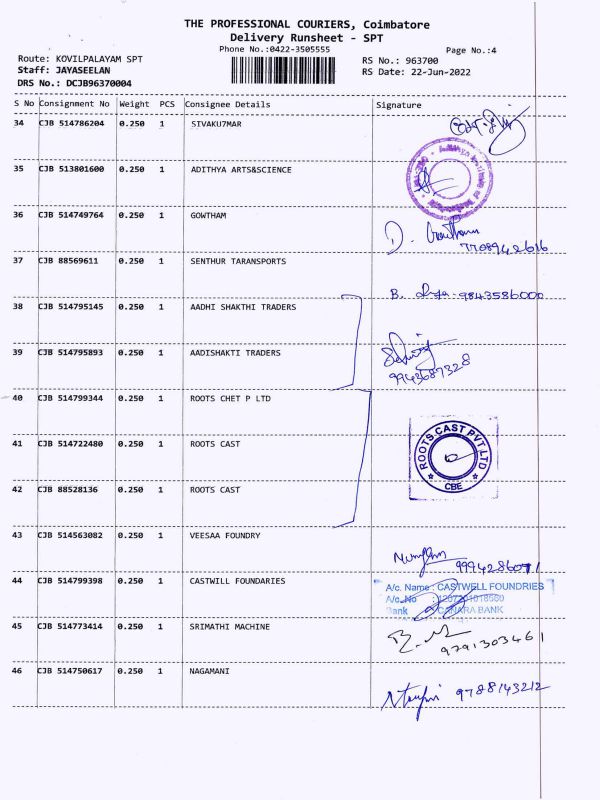 THE PROFESSIONAL COURIERS, Coimbatore
Delivery Runsheet - SPT
Phone No.:0422-3505555
Page No.:4
Route: KOVILPALAYAM SPT
RS No.: 963700
Staff: JAYASEELAN
RS Date: 22-Jun-2022
DRS No.: DCJB96370004
S No Consignment No Weight PCS Consignee Details Signature
34 CJB 514786204 0.250 1 SIVAKU7MAR
35 CJB 513801600 0.250 1 ADITHYA ARTS&SCIENCE
36 CJB 514749764 0.250 1 GOWTHAM
D. Gowtham
7708942616
37 CJB 88569611 0.250 1 SENTHUR TARANSPORTS
B. 9843586000
38 CJB 514795145 0.250 1 AADHI SHAKTHI TRADERS
39 CJB 514795893 0.250 1 AADISHAKTI TRADERS
9943687328
40 CJB 514799344 0.250 1 ROOTS CHET P LTD
41 CJB 514722480 0.250 1 ROOTS CAST
ROOTS CAST PVT LTD
CBE
42 CJB 88528136 0.250 1 ROOTS CAST
43 CJB 514563082 0.250 1 VEESAA FOUNDRY
9994286071
44 CJB 514799398 0.250 1 CASTWILL FOUNDARIES
A/c. Name : CASTWELL FOUNDRIES
A/c. No :
Bank : CANARA BANK
45 CJB 514773414 0.250 1 SRIMATHI MACHINE
9791303461
46 CJB 514750617 0.250 1 NAGAMANI
9788143212